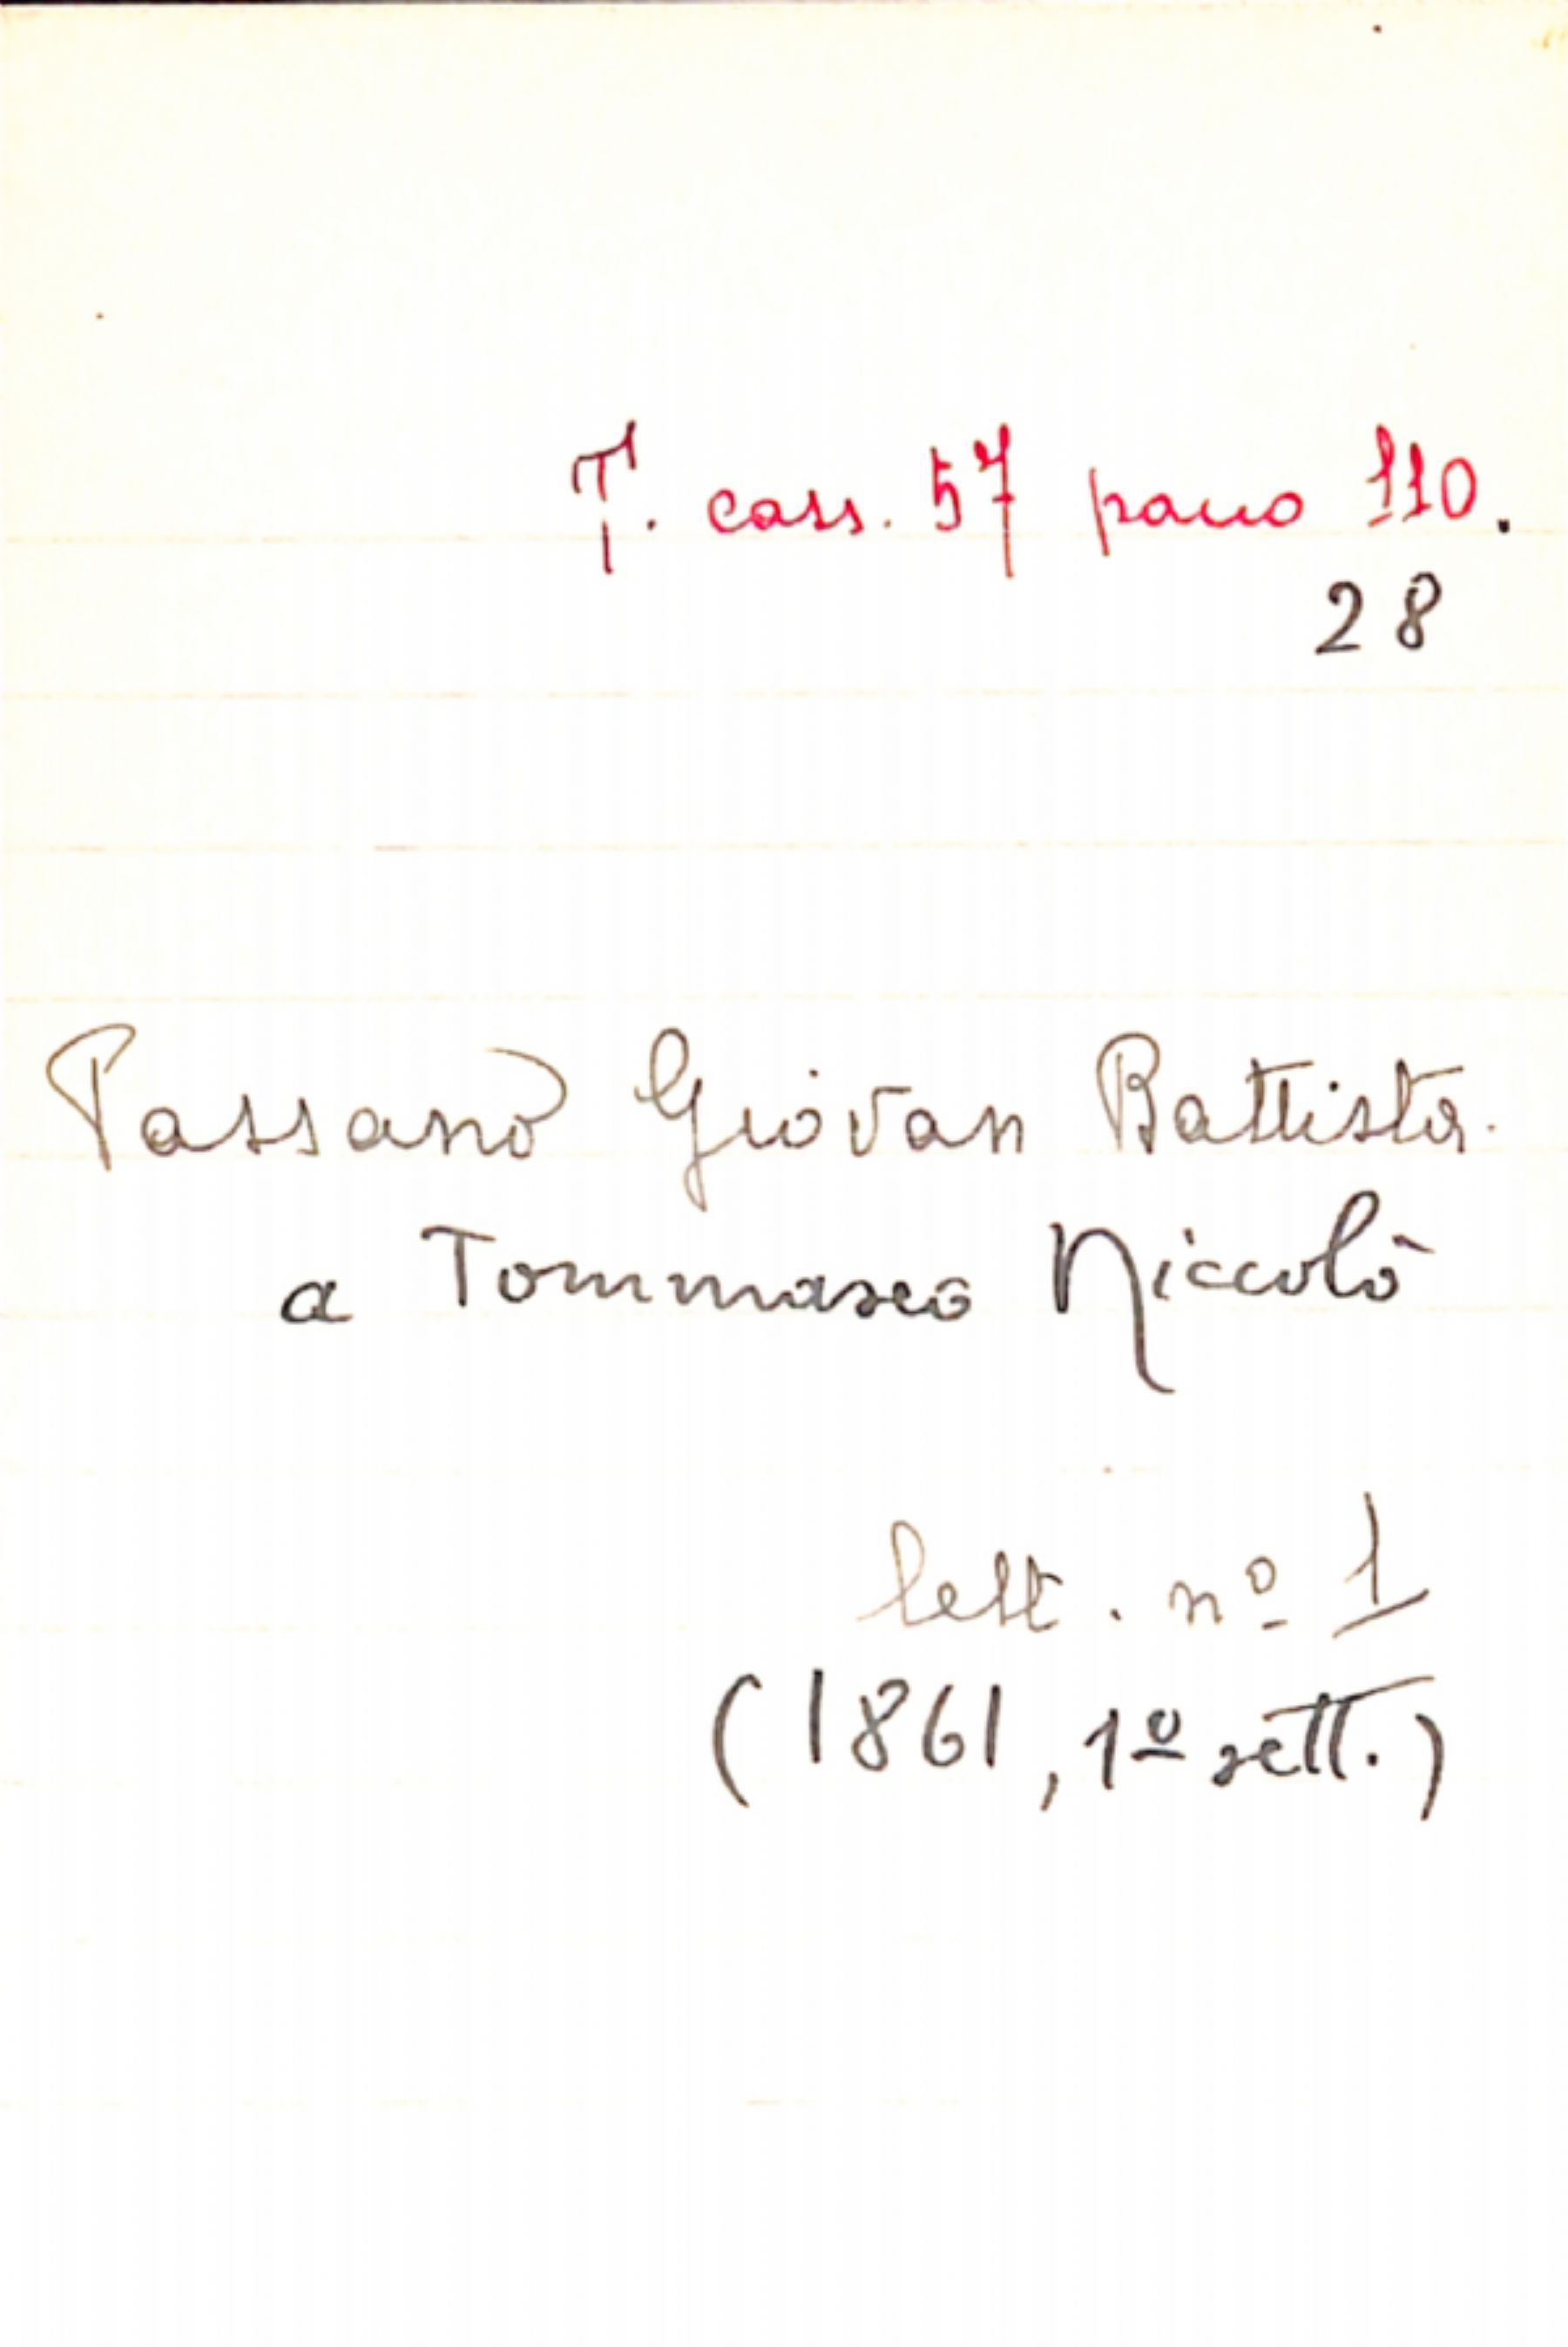 T. cass. 57 pacco 110.
28
Passano Giovan Battista.
a Tommaseo Niccolò
lett. nº 1
(1861, 1º sett.)